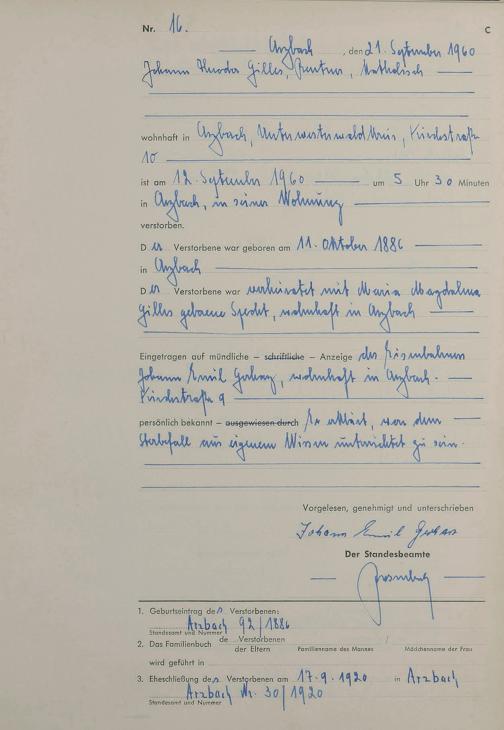 Nr. 16. C
Arzbach, den 21. September 1960
Johann Theodor Gilles, Rentner, katholisch
wohnhaft in Arzbach, Unterwesterwaldkreis, Kirchstraße
10
ist am 12. September 1960 um 5 Uhr 30 Minuten
in Arzbach, in seiner Wohnung
verstorben.
Der Verstorbene war geboren am 11. Oktober 1886
in Arzbach
Der Verstorbene war verheiratet mit Maria Magdalena
Gilles geborene Specht, wohnhaft in Arzbach
Eingetragen auf mündliche – schriftliche – Anzeige des Eisenbahners
Johann Emil, wohnhaft in Arzbach.
Kirchstraße 9
persönlich bekannt – ausgewiesen durch Er erklärt, von dem
Sterbefall aus eigenem Wissen unterrichtet zu sein.
Vorgelesen, genehmigt und unterschrieben
Johann Emil
Der Standesbeamte
1. Geburtseintrag des Verstorbenen:
Arzbach 92/1886
Standesamt und Nummer
2. Das Familienbuch de Verstorbenen
der Eltern Familienname des Mannes Mädchenname der Frau
wird geführt in
3. Eheschließung des Verstorbenen am 17.9.1920 in Arzbach
Arzbach Nr. 30/1920
Standesamt und Nummer